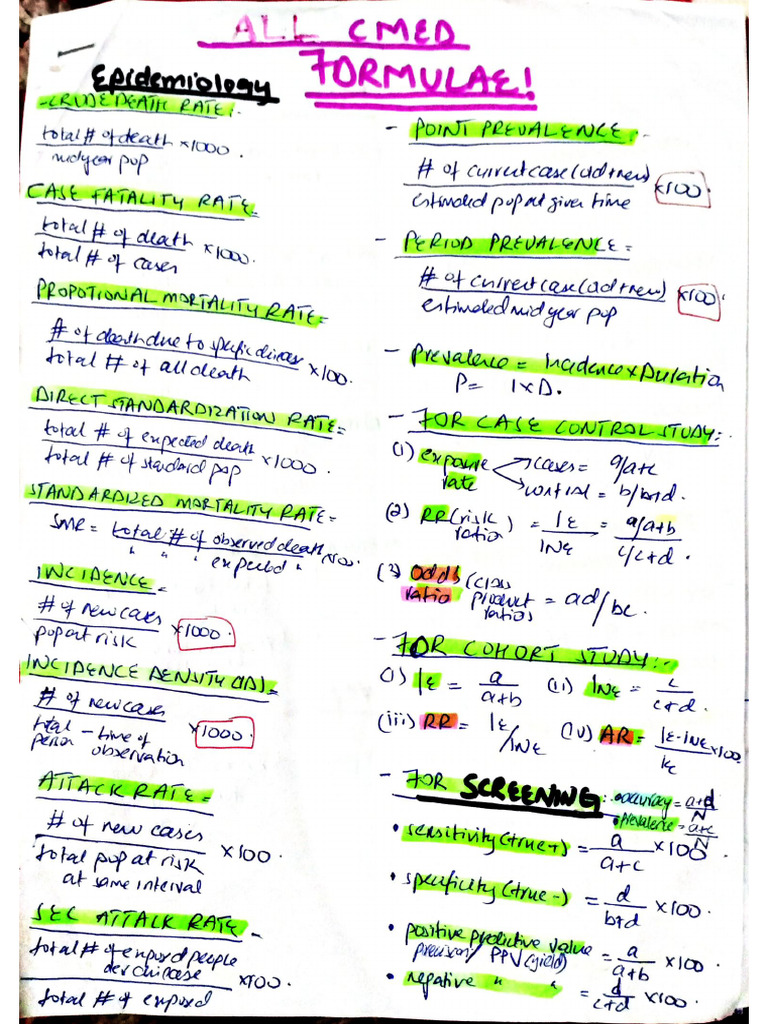 ALL CMED
FORMULAE!
Epidemiology
- CRUDE DEATH RATE:-
total # of death ×1000.
midyear pop
CASE FATALITY RATE
total # of death ×1000.
total # of cases
PROPOTIONAL MORTALITY RATE=
# of death due to specific disease ×100.
total # of all death
DIRECT STANDARDIZATION RATE=
total # of expected death ×1000.
total # of standard pop
STANDARDIZED MORTALITY RATE=
SMR = total # of observed death ×100.
" " " expected "
INCIDENCE =
# of new cases ×1000.
pop at risk
INCIDENCE DENSITY (ID)=
# of new cases ×1000.
total person - time of observation
ATTACK RATE=
# of new cases ×100.
total pop at risk
at same interval
SEC ATTACK RATE -
total # of exposed people
dev disease ×100.
total # of exposed
- POINT PREVALENCE:-
# of current case (old+new) ×100.
estimated pop at given time
- PERIOD PREVALENCE=
# of current case (old+new) ×100.
estimated mid year pop
- Prevalence = Incidence × Duration
P= I×D.
- FOR CASE CONTROL STUDY:-
(1) exposure rate
cases = a/a+c
control = b/b+d.
(2) RR (risk ratio) = IE = a/a+b
INE c/c+d.
(3) Odds ratio (cross product ratios) = ad/bc.
- FOR COHORT STUDY:-
(i) IE = a (ii) INE = c
a+b c+d.
(iii) RR = IE/INE (iv) AR = IE-INE ×100.
- FOR SCREENING:
• accuracy = a+d
N
• prevalence = a+c
N
• sensitivity (true+) = a ×100
a+c
• specificity (true-) = d ×100.
b+d
• positive predictive value
precision/ PPV (yield) = a ×100.
a+b
• negative " " = d ×100.
c+d